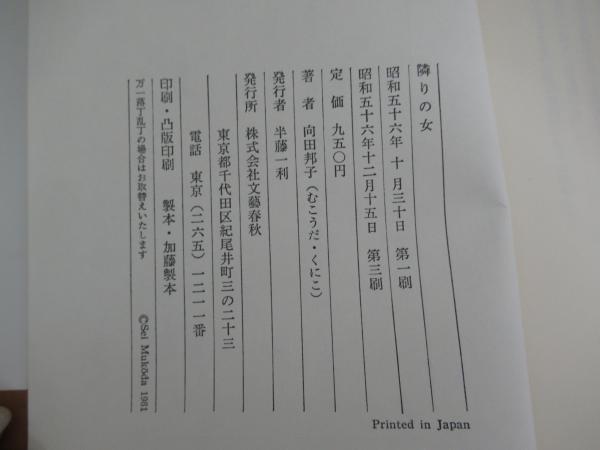 隣りの女
昭和五十六年 十 月三十日 第一刷
昭和五十六年十二月十五日 第三刷
定 価 九五〇円
著 者 向田邦子(むこうだ・くにこ)
発行者 半藤一利
発行所 株式会社文藝春秋
東京都千代田区紀尾井町三の二十三
電話 東京(二六五)一二一一番
印刷・凸版印刷 製本・加藤製本
万一落丁乱丁の場合はお取替えいたします
©Sei Mukōda 1981
Printed in Japan